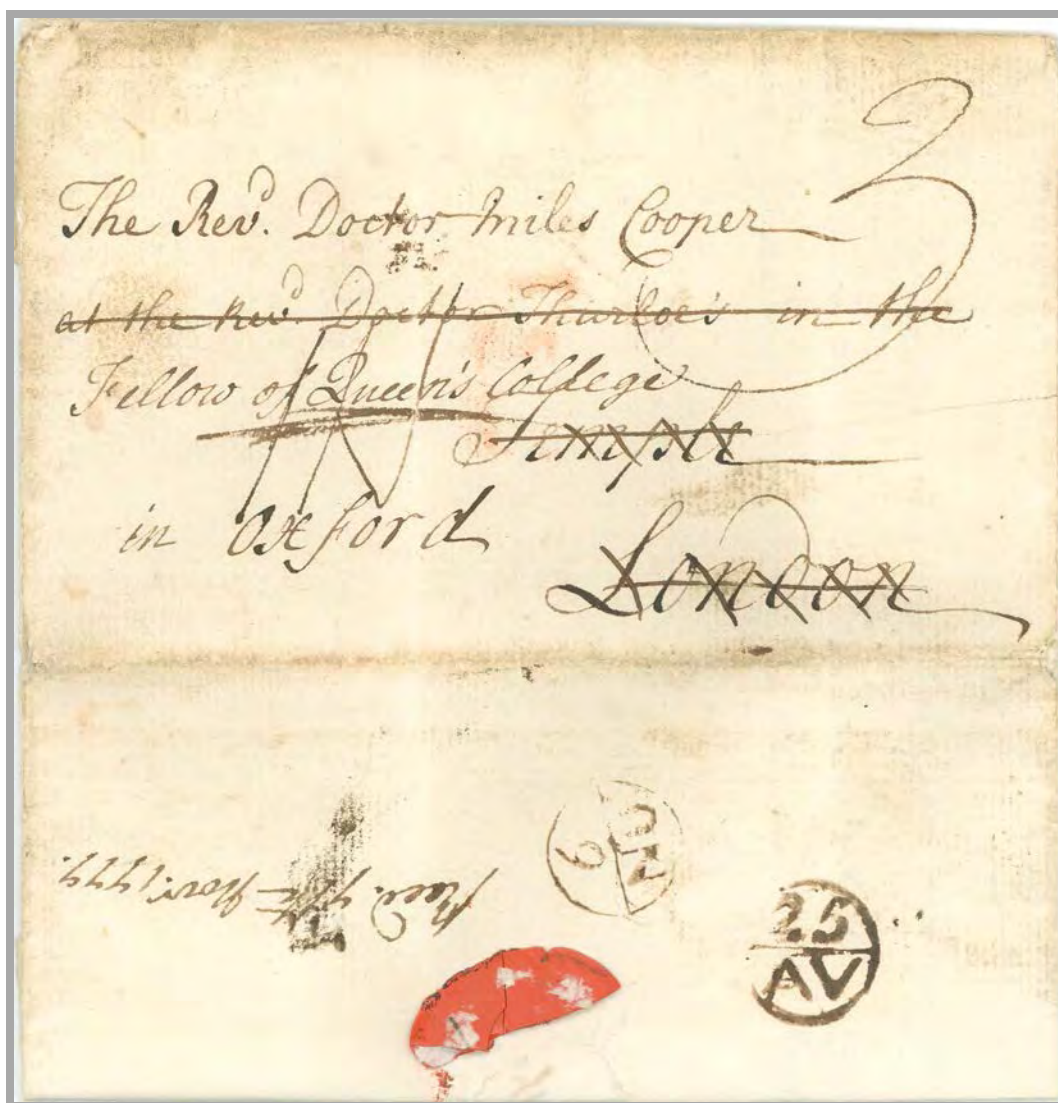 The Revd. Doctor Miles Cooper
at the Revd. Doctor Thurloe's in the
Fellow of Queen's College
Temple
in Oxford
London
3
Recd. 7th Novr. 1777.
NO
25
AV